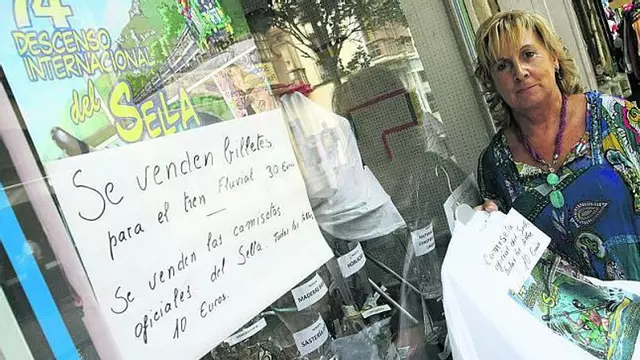 74
DESCENSO
INTERNACIONAL
del SELLA
Se venden billetes
para el tren Fluvial 30 Euros
Se venden las camisetas
oficiales del Sella. Todas las tallas
10 Euros.
MADERA
MOBILIARIO
SASTRERÍA
Camiseta
oficial del Sella
Todas las tallas
10 Euros